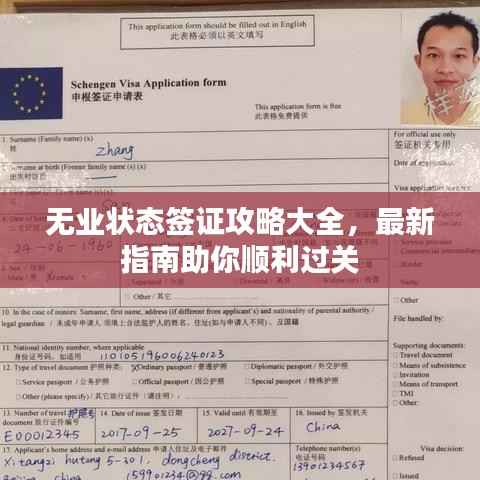 This application form should be filled out in English
此表格必须以英文填写
Schengen Visa Application form
申根签证申请表
This application form is Free
此表格免费提供
样
1. Surname (Family name) (x)
Zhang
For official use only
签证机关专用
Date of application:
Surname at birth (Former family name (s) (x)
无业状态签证攻略大全，最新
指南助你顺利过关
24-06-1960
Other/其它
10. In the case of minors: Surname, first name, address (if different from applicant's) and nationality of parental authority /
legal guardian / 未成年申请人须填上合法监护人的姓名、住址(如与申请人不同)、及国籍
File handled by:
11. National identity number, where applicable
身份证号码，如适用
110105196006240123
Supporting documents:
Travel document
Means of subsistence
Invitation
Means of transport
TMI
Other:
12. Type of travel document 护照种类:
Ordinary passport / 普通护照
Diplomatic passport / 外交护照
Service passport / 公务护照
Official passport / 因公护照
Special passport / 特殊护照
Other (please specify) / 其它旅行证件（请注明）:
13. Number of travel 护照号
E00012345
14. Date of issue 签发日期
2017-09-25
15. Valid until 有效期至
2027-09-24
16. Issued by 签发机关
China
17. Applicant's home address and e-mail address
申请人住址及电子邮件
Xitangzi hutong 5-301, dongcheng district.
Beijing, China
159901234@qq.com
Telephone number(s)
电话号码
13901234567
Visa decision:
Refused